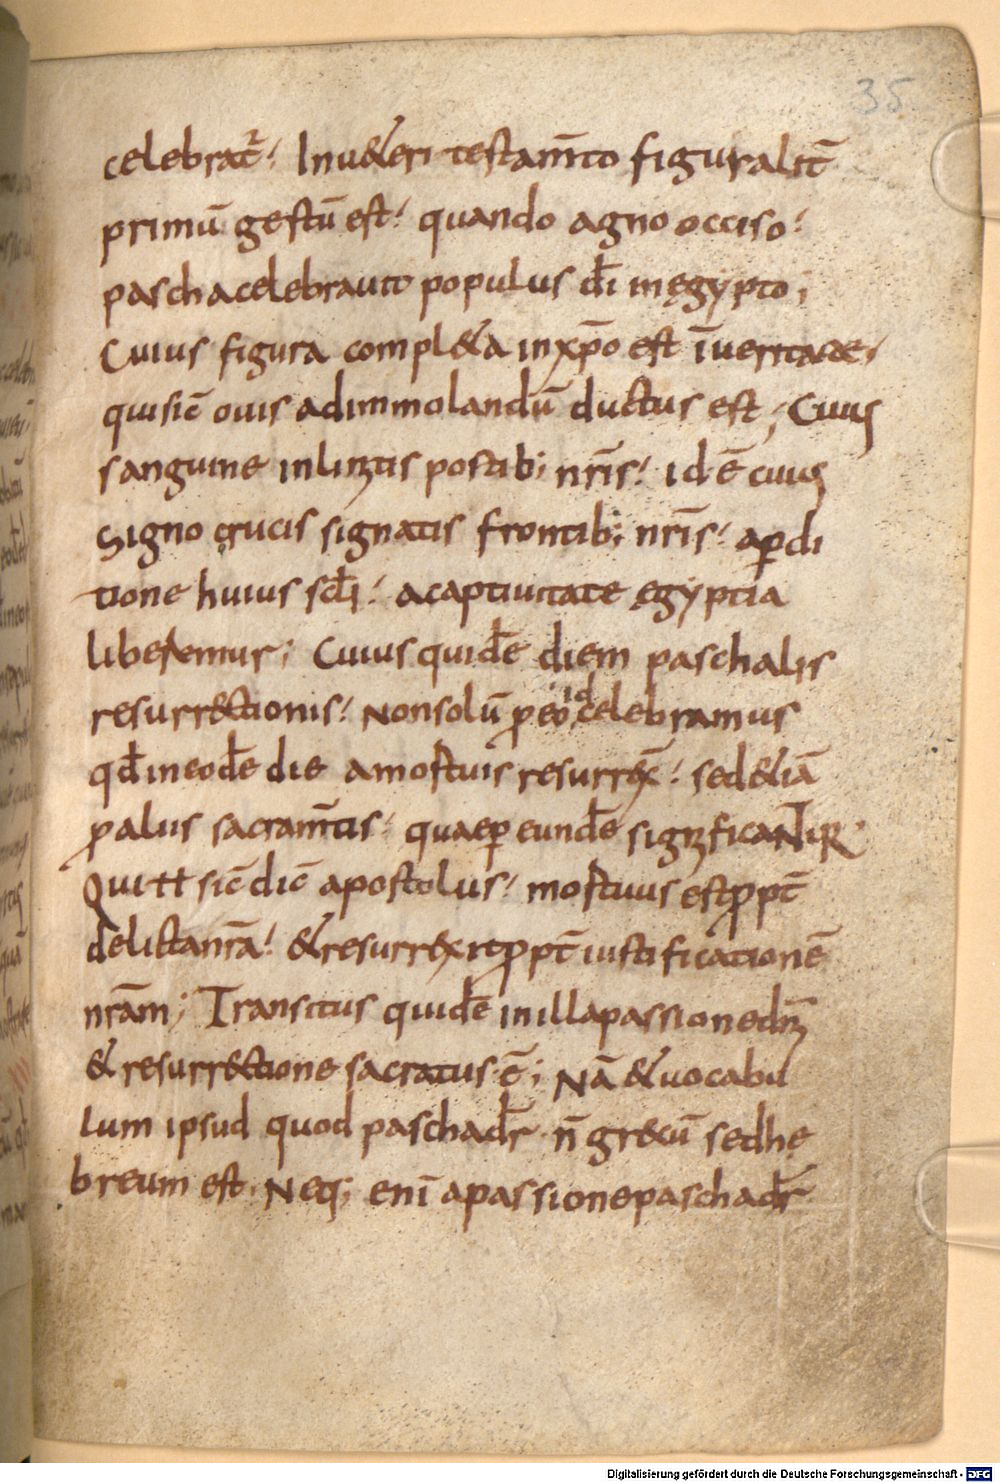 35
celebrat᷑ ; Inu&eri testam̅to figuralit̅
primū gestū est ; quando agno occiso ;
paschacelebrauit populus dī inęgypto ;
Cuius figura compl&a inxp̅o est īueritate ;
quisic̅ ouis adimmolandū ductus est ; Cuius
sanguine inlinitis postib; nr̅is ; id ē cuius
Signo crucis signatis frontib; nr̅is ; aꝑdi
tione huius scl̅i ; acaptiuitate ęgyptia
liberemur ; Cuius quidē diem paschalis
resurrectionis ; Nonsolū ꝑeo id celebramus
qd̅ ineodē die amortuis resurrex̅ ; sed&iā
ꝓaliis sacram̅tis ; quaeꝑ eundē significaNtur
Quia sic̅ dic̅ apostolus ; mortuus estꝓpt̅
delictanr̅a ; &resurrexitꝓpt̅ iustificationē
nr̅am ; Transitus quidē inillapassionedni̅
& resurrectione sacratus ē ; Nā &uocabu
lum ipsud quod paschadr̅ n̅ grecū sedhe
breum est . Neq; eni̅ apassionepaschadr̅
Digitalisierung gefördert durch die Deutsche Forschungsgemeinschaft - DFG